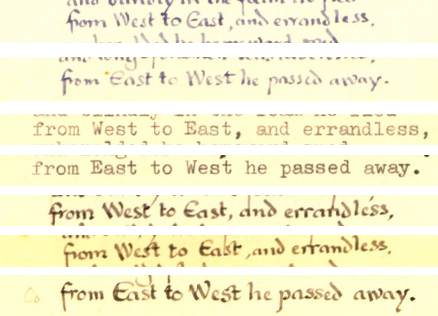 from West to East, and errandless,
from East to West he passed away.
from West to East, and errandless,
from East to West he passed away.
from West to East, and errandless,
from West to East, and errandless,
from East to West he passed away.